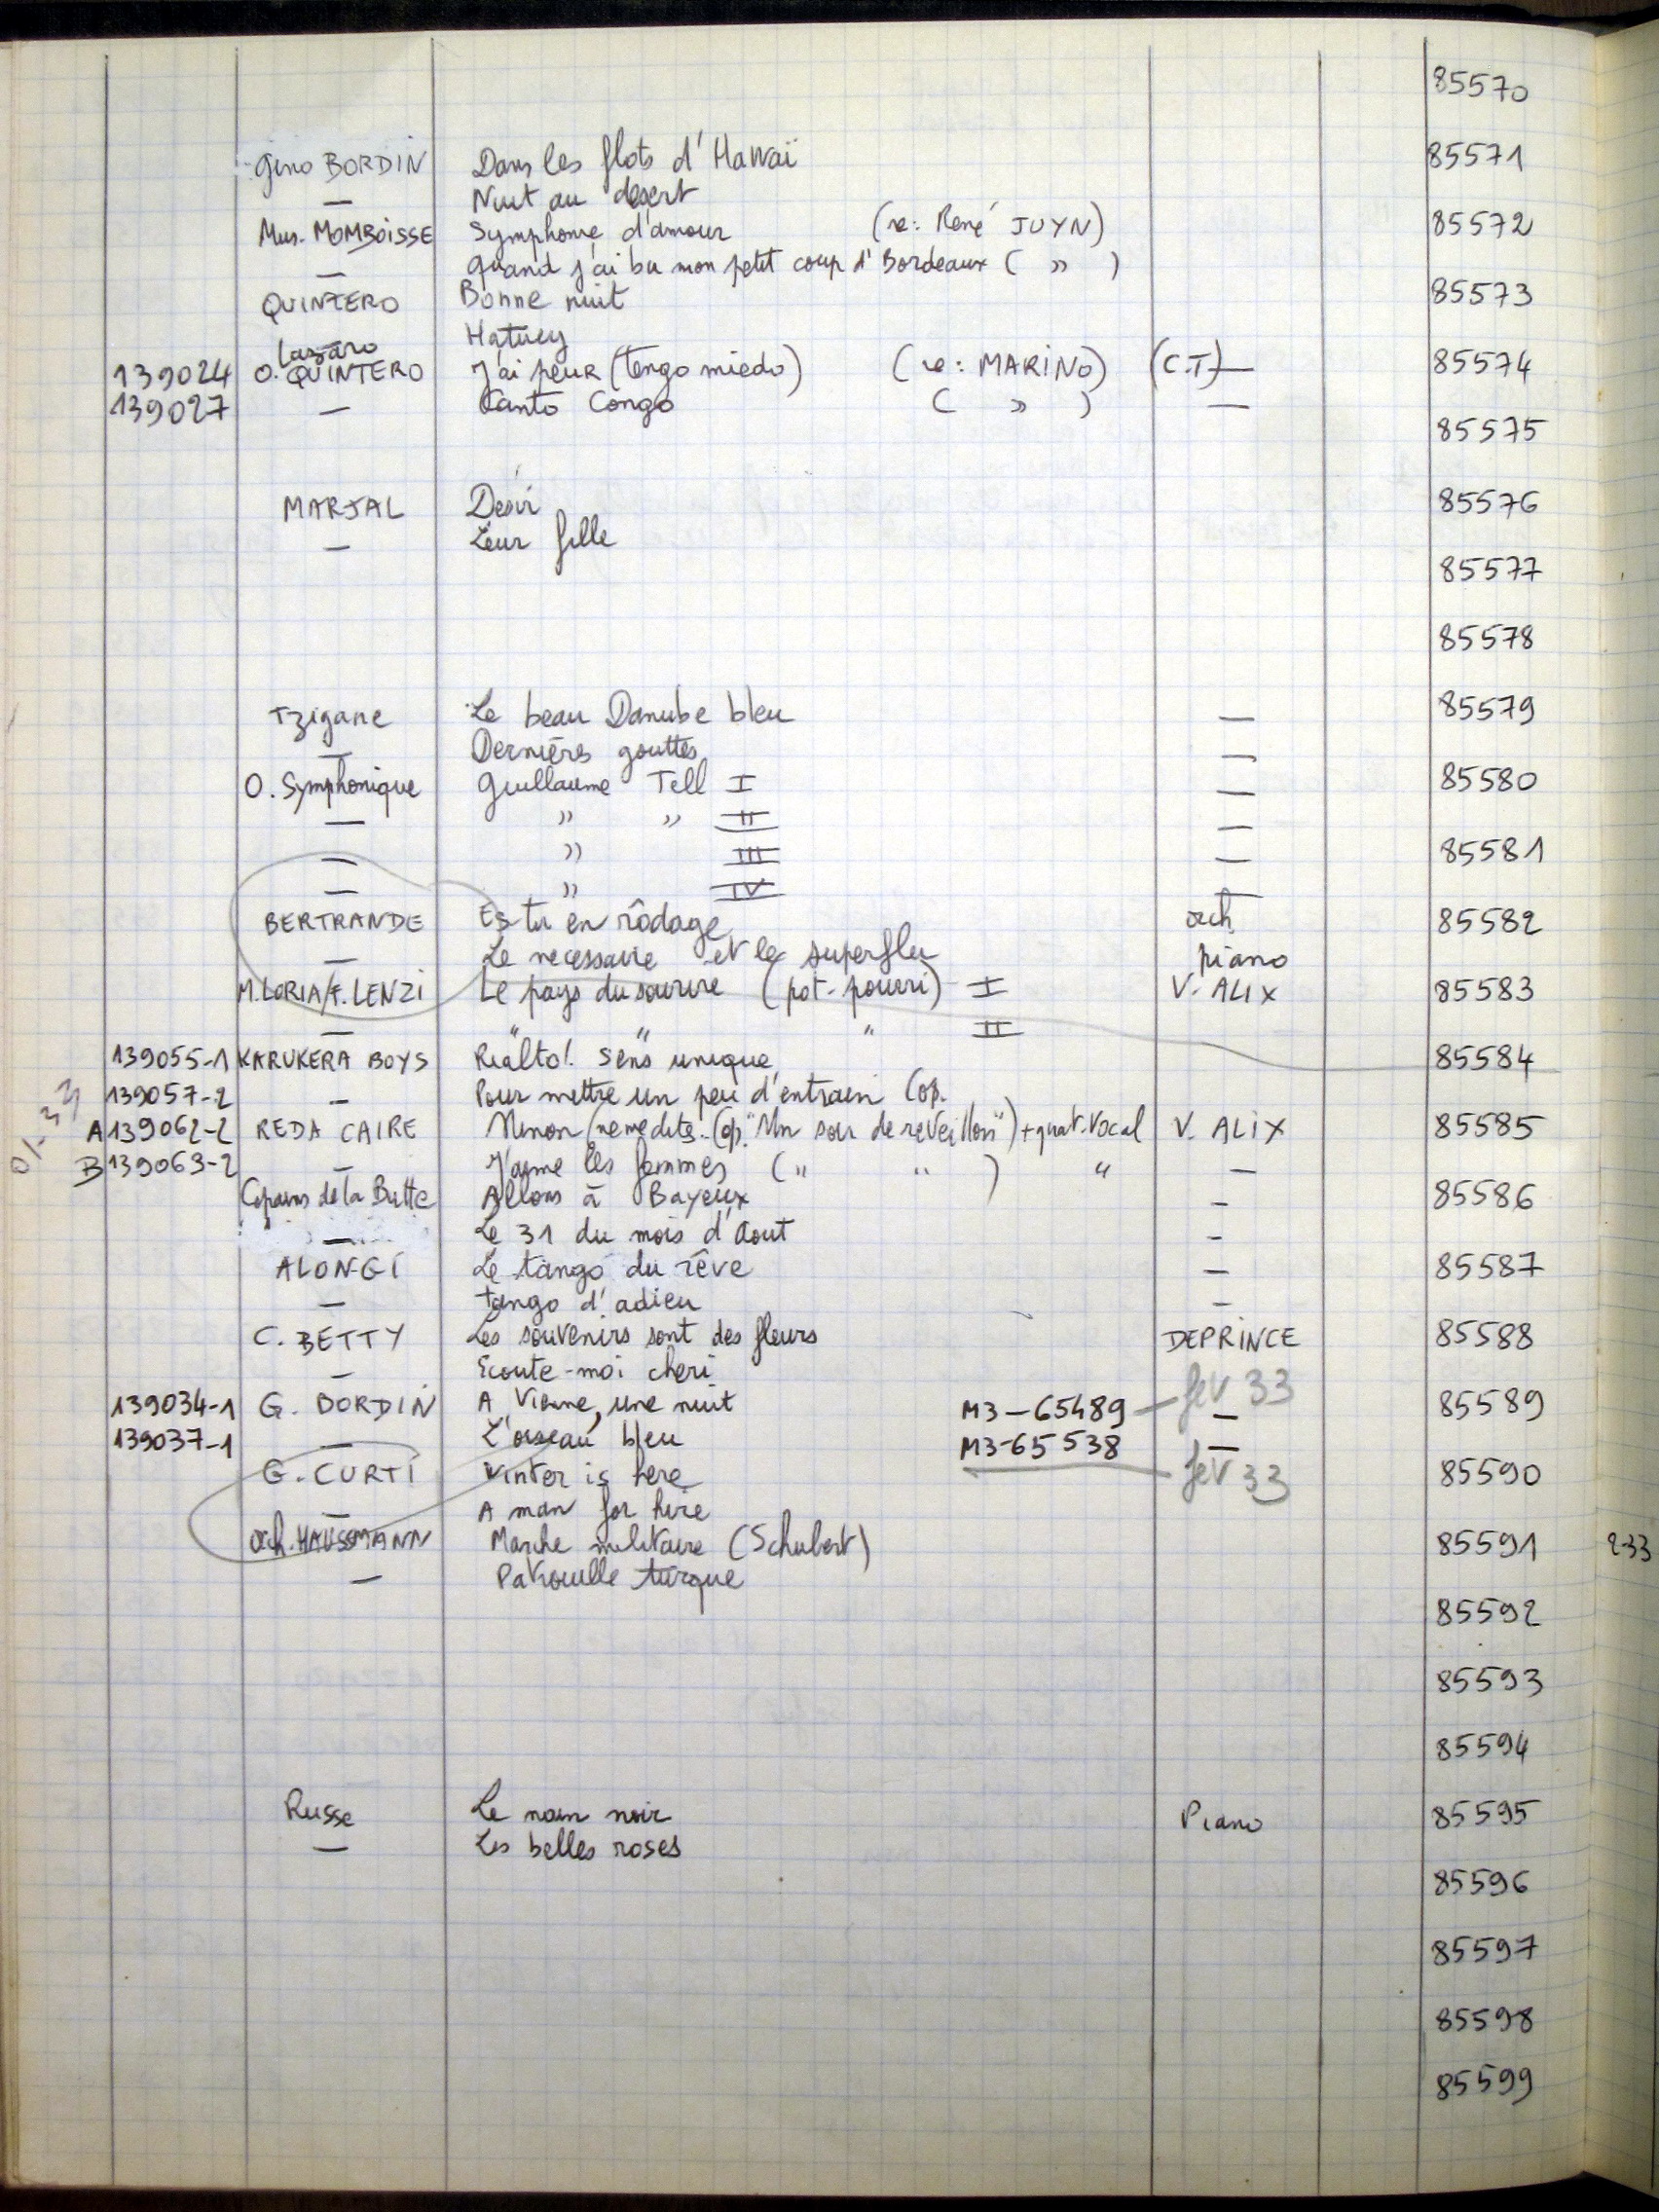 85570
Gino BORDIN Dans les flots d'Hawaï 85571
— Nuit au désert
Mus. MOMBOISSE Symphonie d'amour (re: René JUYN) 85572
— Quand j'ai bu mon petit coup d'Bordeaux ( " )
QUINTERO Bonne nuit 85573
Hatuey
Lazaro
139024 O. QUINTERO J'ai peur (Tengo miedo) (re: MARINO) (C.T) — 85574
139027 — Canto Congo ( " ) —
85575
MARJAL Désir 85576
— Leur fille
85577
85578
Tzigane Le beau Danube bleu — 85579
— Dernières gouttes —
O. Symphonique Guillaume Tell I — 85580
— " " II —
— " III — 85581
— " IV —
BERTRANDE Es tu en rôdage orch 85582
— Le necessaire et le superflu piano
M.LORIA/F.LENZI Le pays du sourire (pot-pourri) I V. ALIX 85583
— " " " II
139055-1 KARUKERA BOYS Rialto! Sens unique 85584
139057-2 — Pour mettre un peu d'entrain (op.
01-33
A 139062-2 REDA CAIRE Ninon (ne me dites.. (op. "Un soir de reveillon") + quat. Vocal V. ALIX 85585
B 139063-2 — J'aime les femmes ( " " ) " —
Copains de la Butte Allons à Bayeux — 85586
— Le 31 du mois d'Aout -
ALONGI Le tango du rêve — 85587
— tango d'adieu —
C. BETTY Les souvenirs sont des fleurs DEPRINCE 85588
— Ecoute-moi cheri
139034-1 G. BORDIN A Vienne, une nuit M3-65489 — fev 33 — 85589
139037-1 — L'oiseau bleu M3-65538 —
G. CURTI Winter is here fev 33 85590
— A man for hire
Orch. HAUSSMANN Marche militaire (Schubert) 85591 2-33
— Patrouille turque
85592
85593
85594
Russe Le nain noir Piano 85595
— Les belles roses
85596
85597
85598
85599